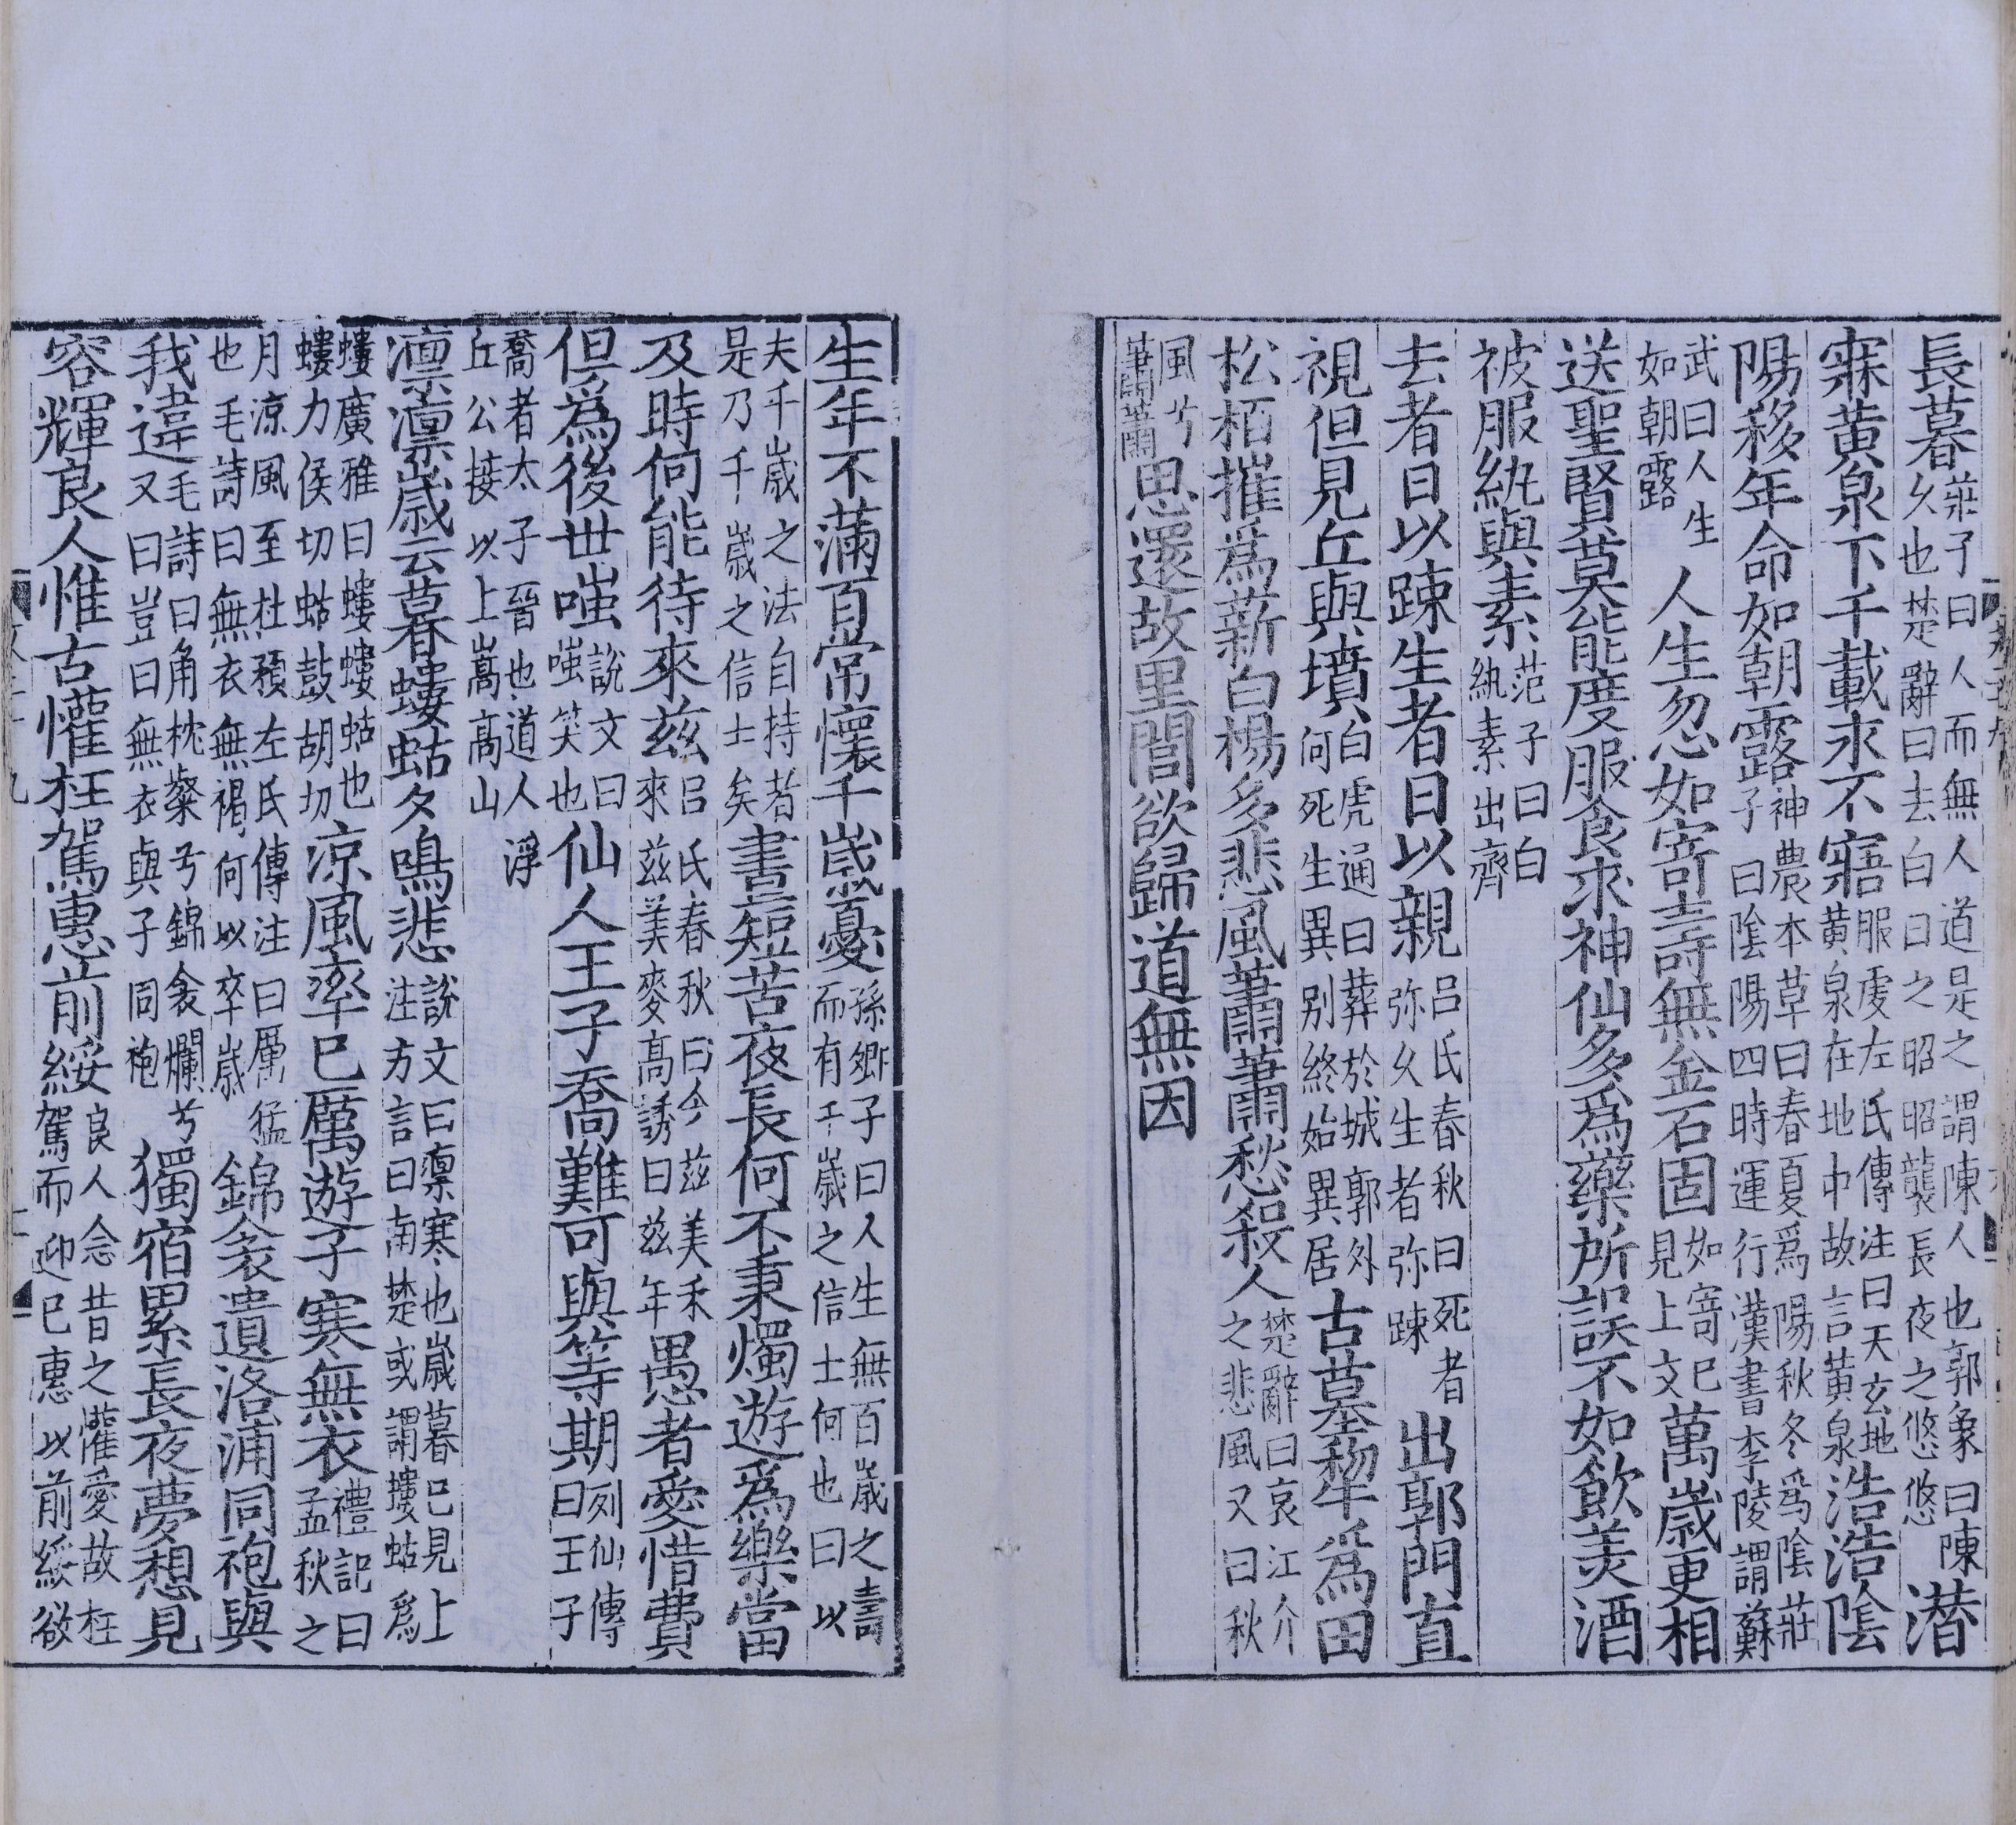 長暮莊子曰人而無人道是之謂陳人也郭象曰陳久也楚辭曰去白日之昭昭襲長夜之悠悠潛
寐黃泉下千載永不寤服虔左氏傳注曰天玄地黃泉在地中故言黃泉浩浩陰
陽移年命如朝露神農本草曰春夏爲陽秋冬爲陰莊子曰陰陽四時運行漢書李陵謂蘇
武曰人生如朝露人生忽如寄壽無金石固如寄已見上文萬歲更相
送聖賢莫能度服食求神仙多爲藥所誤不如飲美酒
被服紈與素范子曰白紈素出齊
去者日以踈生者日以親呂氏春秋曰死者弥久生者弥踈出郭門直
視但見丘與墳白虎通曰葬於城郭外何死生異别終始異居古墓犂爲田
松栢摧爲薪白楊多悲風蕭蕭愁殺人楚辭曰哀江介之悲風又曰秋
風兮蕭蕭思還故里閭欲歸道無因
生年不滿百常懷千歲憂孫卿子曰人生無百歲之壽而有千歲之信士何也曰以
夫千歲之法自持者是乃千歲之信士矣晝短苦夜長何不秉燭遊爲樂當
及時何能待來茲呂氏春秋曰今茲美禾來茲美麥高誘曰茲年愚者愛惜費
但爲後世嗤說文曰嗤笑也仙人王子喬難可與等期列仙傳曰王子
喬者太子晉也道人浮丘公接以上嵩高山
凛凛歲云暮螻蛄夕鳴悲說文曰凛寒也歲暮已見上注方言曰南楚或謂螻蛄爲
螻廣雅曰螻螻蛄也螻力侯切蛄鼓胡切凉風率已厲遊子寒無衣禮記曰孟秋之
月涼風至杜預左氏傳注曰厲猛也毛詩曰無衣無褐何以卒歲錦衾遺洛浦同袍與
我違毛詩曰角枕粲兮錦衾爛兮又曰豈曰無衣與子同袍獨宿累長夜夢想見
容輝良人惟古懽枉駕惠前綏良人念昔之懽愛故枉駕而迎已惠以前綏欲